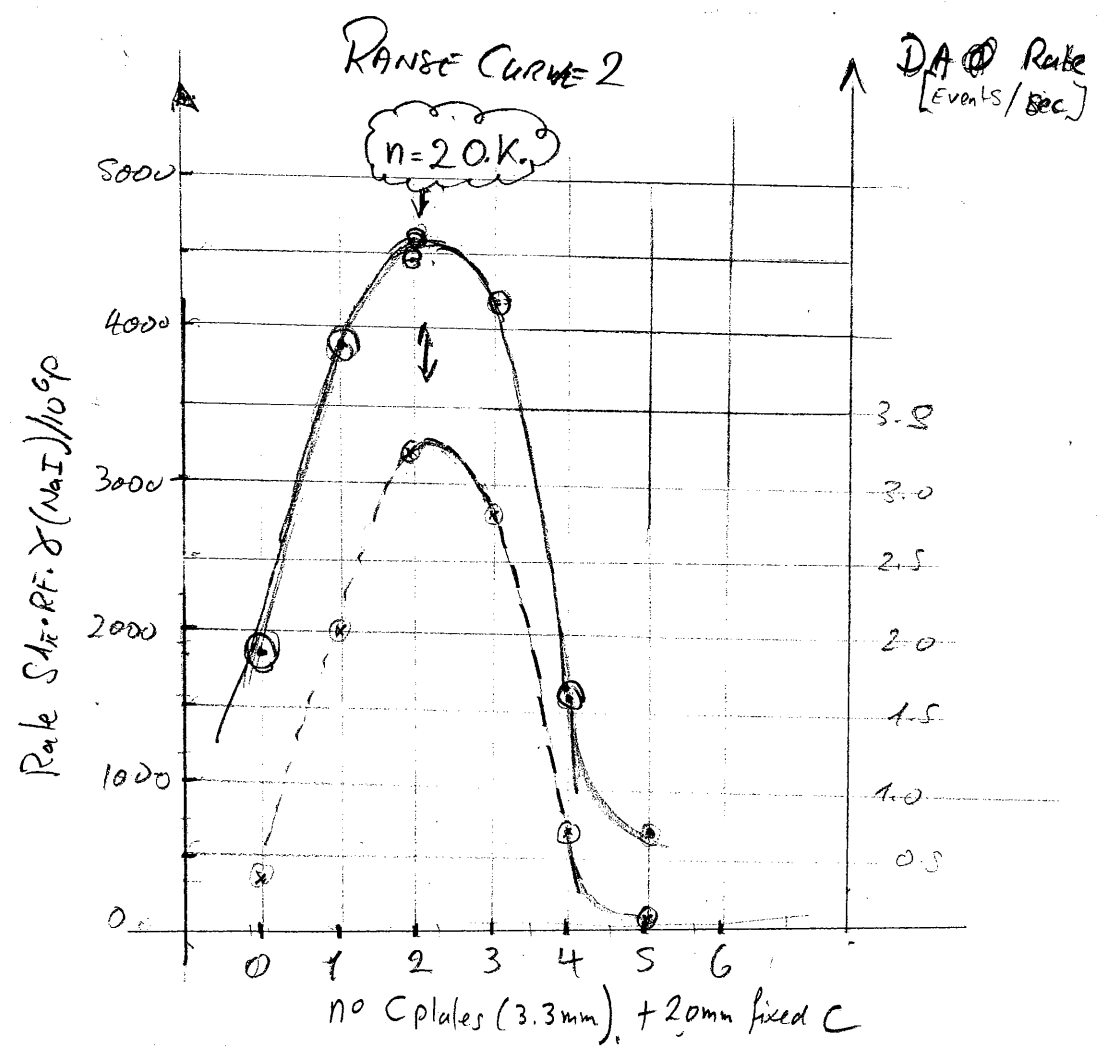 RANGE CURVE 2
DAQ Rate
[Events/sec]
n=2 O.K.
5000
4000
3000
2000
1000
0
3.5
3.0
2.5
2.0
1.5
1.0
0.5
Rate S1π·RF·γ(NaI)/10⁶p
0 1 2 3 4 5 6
n° C plates (3.3mm), + 20mm fixed C